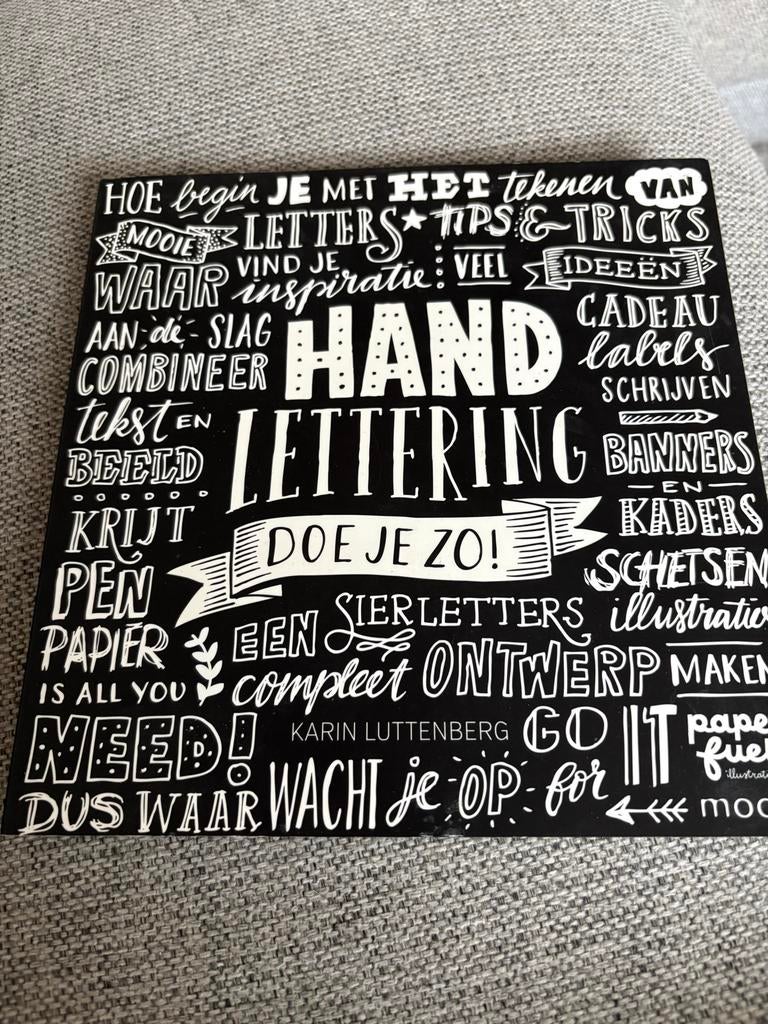 HOE begin JE MET HET tekenen VAN
MOOIE LETTERS TIPS & TRICKS
WAAR VIND JE inspiratie VEEL IDEEËN
AAN de SLAG
COMBINEER
tekst EN
BEELD
KRIJT
PEN
PAPIER
IS ALL YOU
NEED!
HAND
LETTERING
DOE JE ZO!
CADEAU
labels
SCHRIJVEN
BANNERS
EN
KADERS
SCHETSEN
EEN SIERLETTERS illustratie
compleet ONTWERP MAKEN
KARIN LUTTENBERG GO IT
DUS WAAR WACHT je OP for